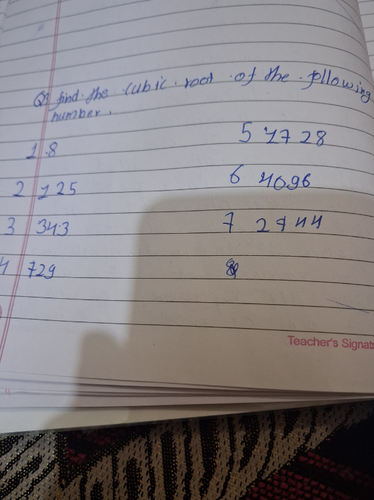 Q1 find the cubic root of the following
number.
1 8
2 125
3 343
4 729
5 1728
6 4096
7 2744
Teacher's Signat